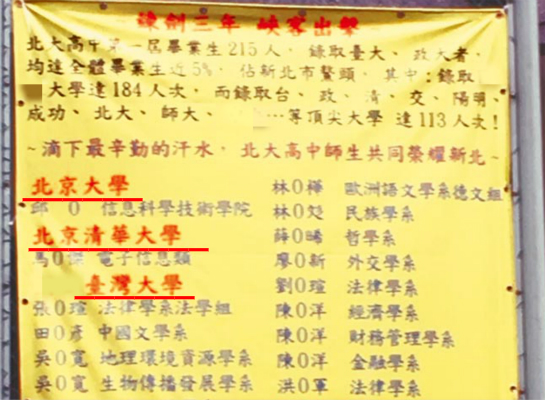 鍊劍三年 峽客出擊
北大高中第一屆畢業生215人，錄取臺大、政大者，
均達全體畢業生近5%，佔新北市鰲頭，其中：錄取
大學達184人次，而錄取台、政、清、交、陽明、
成功、北大、師大、…等頂尖大學 達113人次！
~滴下最辛勤的汗水，北大高中師生共同榮耀新北~
北京大學
邱 O 信息科學技術學院
北京清華大學
馬O傑 電子信息類
臺灣大學
張O瑄 法律學系法學組
田O彥 中國文學系
吳O寬 地理環境資源學系
吳O寬 生物傳播發展學系
林O樺 歐洲語文學系德文組
林O彣 民族學系
薛O晞 哲學系
廖O新 外交學系
劉O瑄 法律學系
陳O洋 經濟學系
陳O洋 財務管理學系
陳O洋 金融學系
洪O軍 法律學系